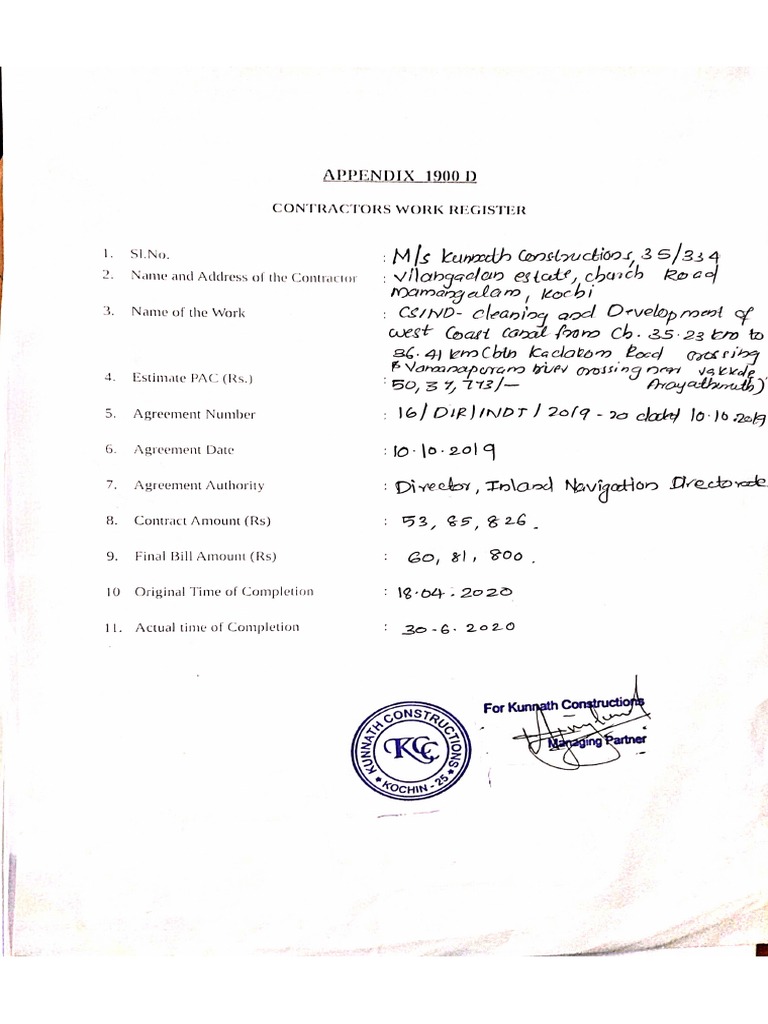 APPENDIX 1900 D
CONTRACTORS WORK REGISTER
1. Sl.No. : M/s Kunnath Constructions, 35/334
2. Name and Address of the Contractor : Vilangadan estate, church Road
Mamangalam, Kochi
3. Name of the Work : CS/IND- cleaning and Development of
West Coast Canal from Ch. 35.23 km to
36.41 km (btn Kadakom Road crossing
& Vamanapuram river crossing near
4. Estimate PAC (Rs.) : 50,37,773/- Arayathuruth)
5. Agreement Number : 16/DIR/INDT/2019-20 dated 10.10.2019
6. Agreement Date : 10.10.2019
7. Agreement Authority : Director, Inland Navigation Directorate
8. Contract Amount (Rs) : 53,85,826.
9. Final Bill Amount (Rs) : 60,81,800.
10 Original Time of Completion : 18.04.2020
11. Actual time of Completion : 30-6.2020
For Kunnath Constructions
Managing Partner
KUNNATH CONSTRUCTIONS
KCC
* KOCHIN - 25 *